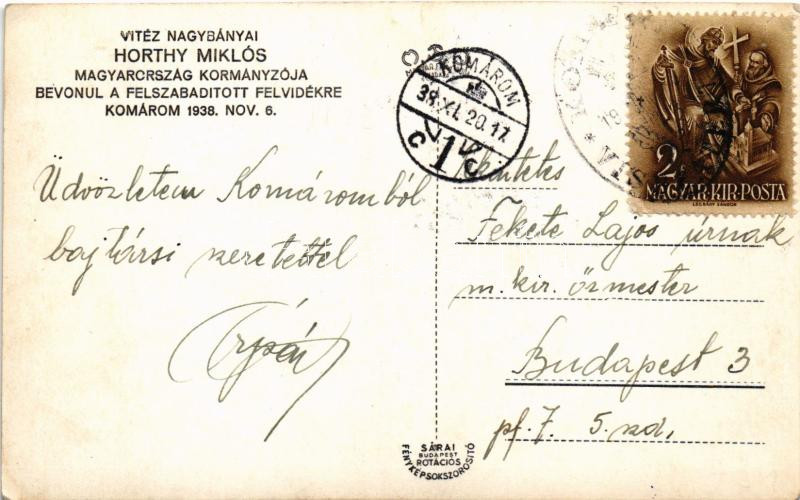 VITÉZ NAGYBÁNYAI
HORTHY MIKLÓS
MAGYARCRSZÁG KORMÁNYZÓJA
BEVONUL A FELSZABADITOTT FELVIDÉKRE
KOMÁROM 1938. NOV. 6.
Üdvözletem Komáromból
bajtársi szeretettel
Árpád
KOMÁROM
38.XI.20.17
1
C
2
MAGYAR·KIR·POSTA
LEGRÁDY SÁNDOR
Tekintetes
Fekete Lajos úrnak
m. kir. őrmester
Budapest 3
pf. 7. 5. szd,
SÁRAI
BUDAPEST
ROTÁCIÓS
FÉNYKÉPSOKSZOROSITÓ